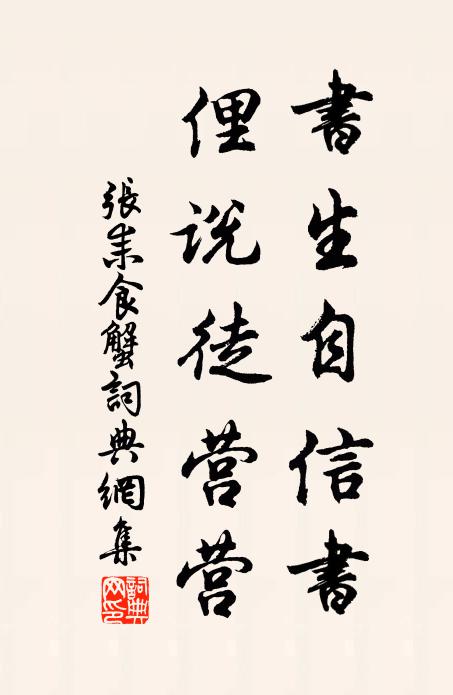 書生自信書
俚说徒营营
張耒食蟹詞典網集
詞典网印